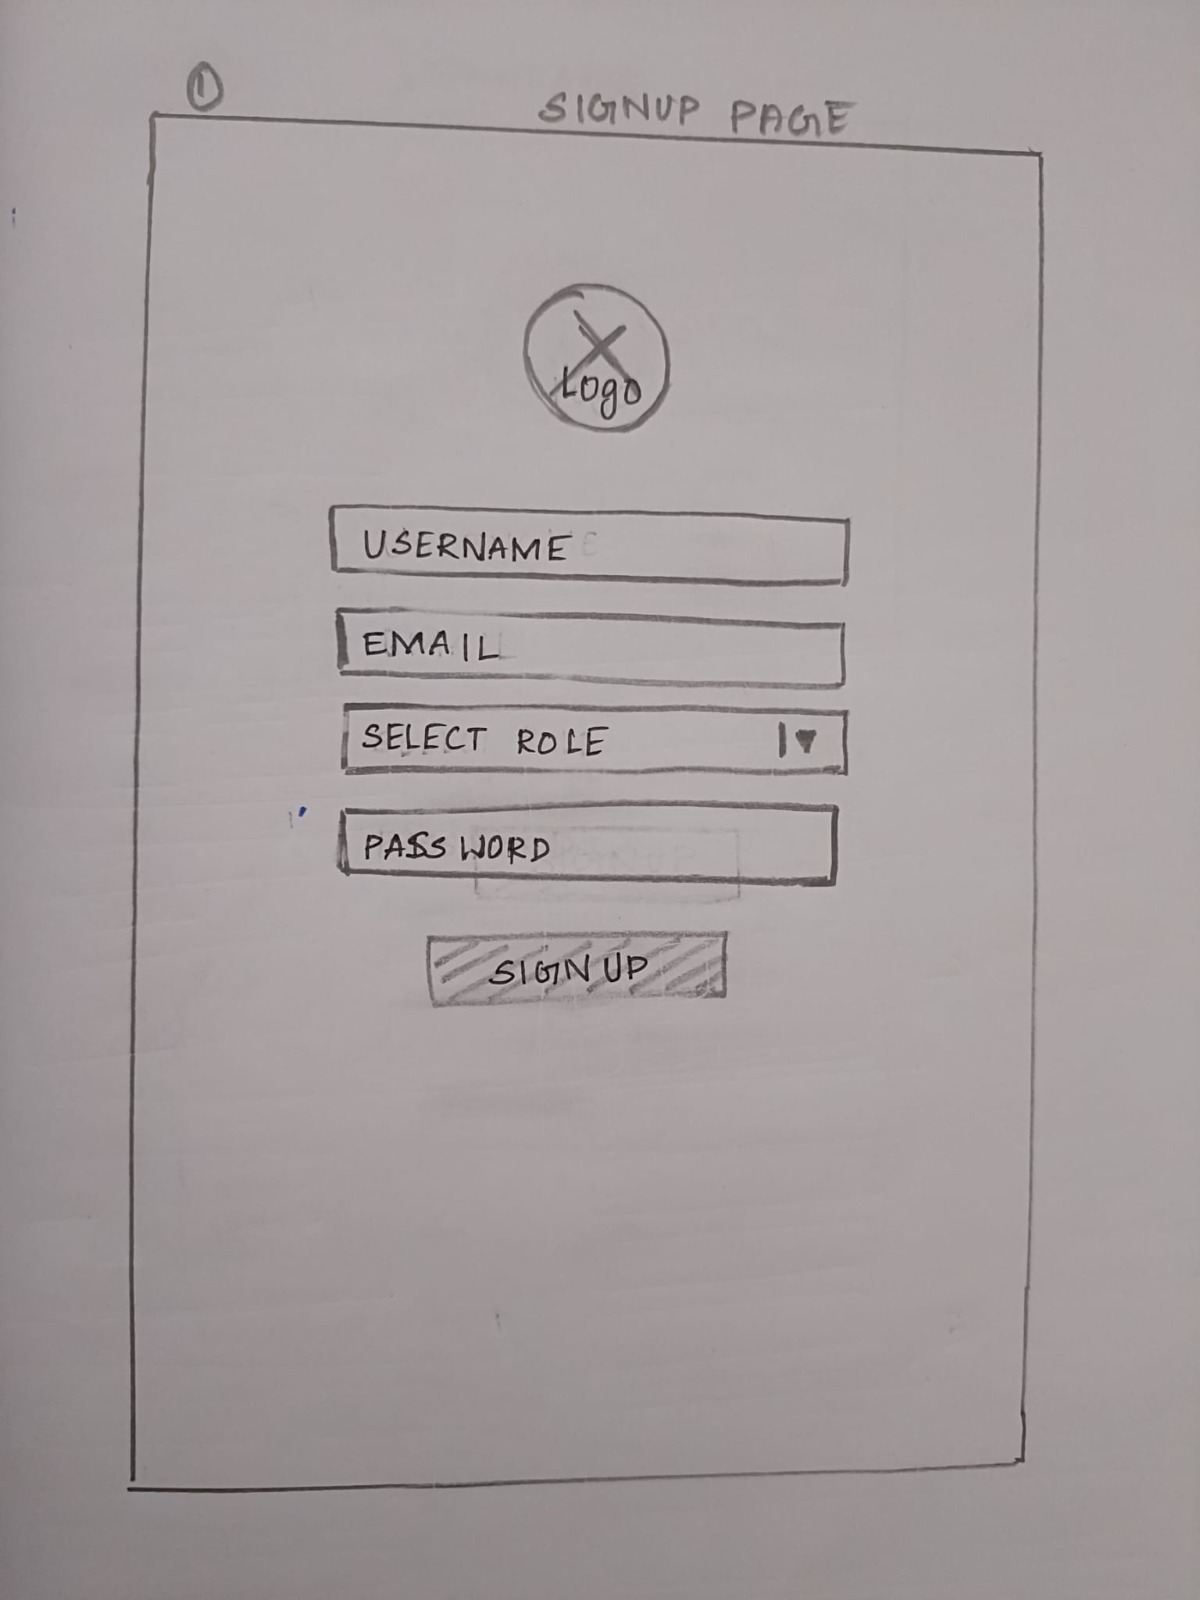 1
SIGNUP PAGE
X
Logo
USERNAME
EMAIL
SELECT ROLE
PASSWORD
SIGNUP